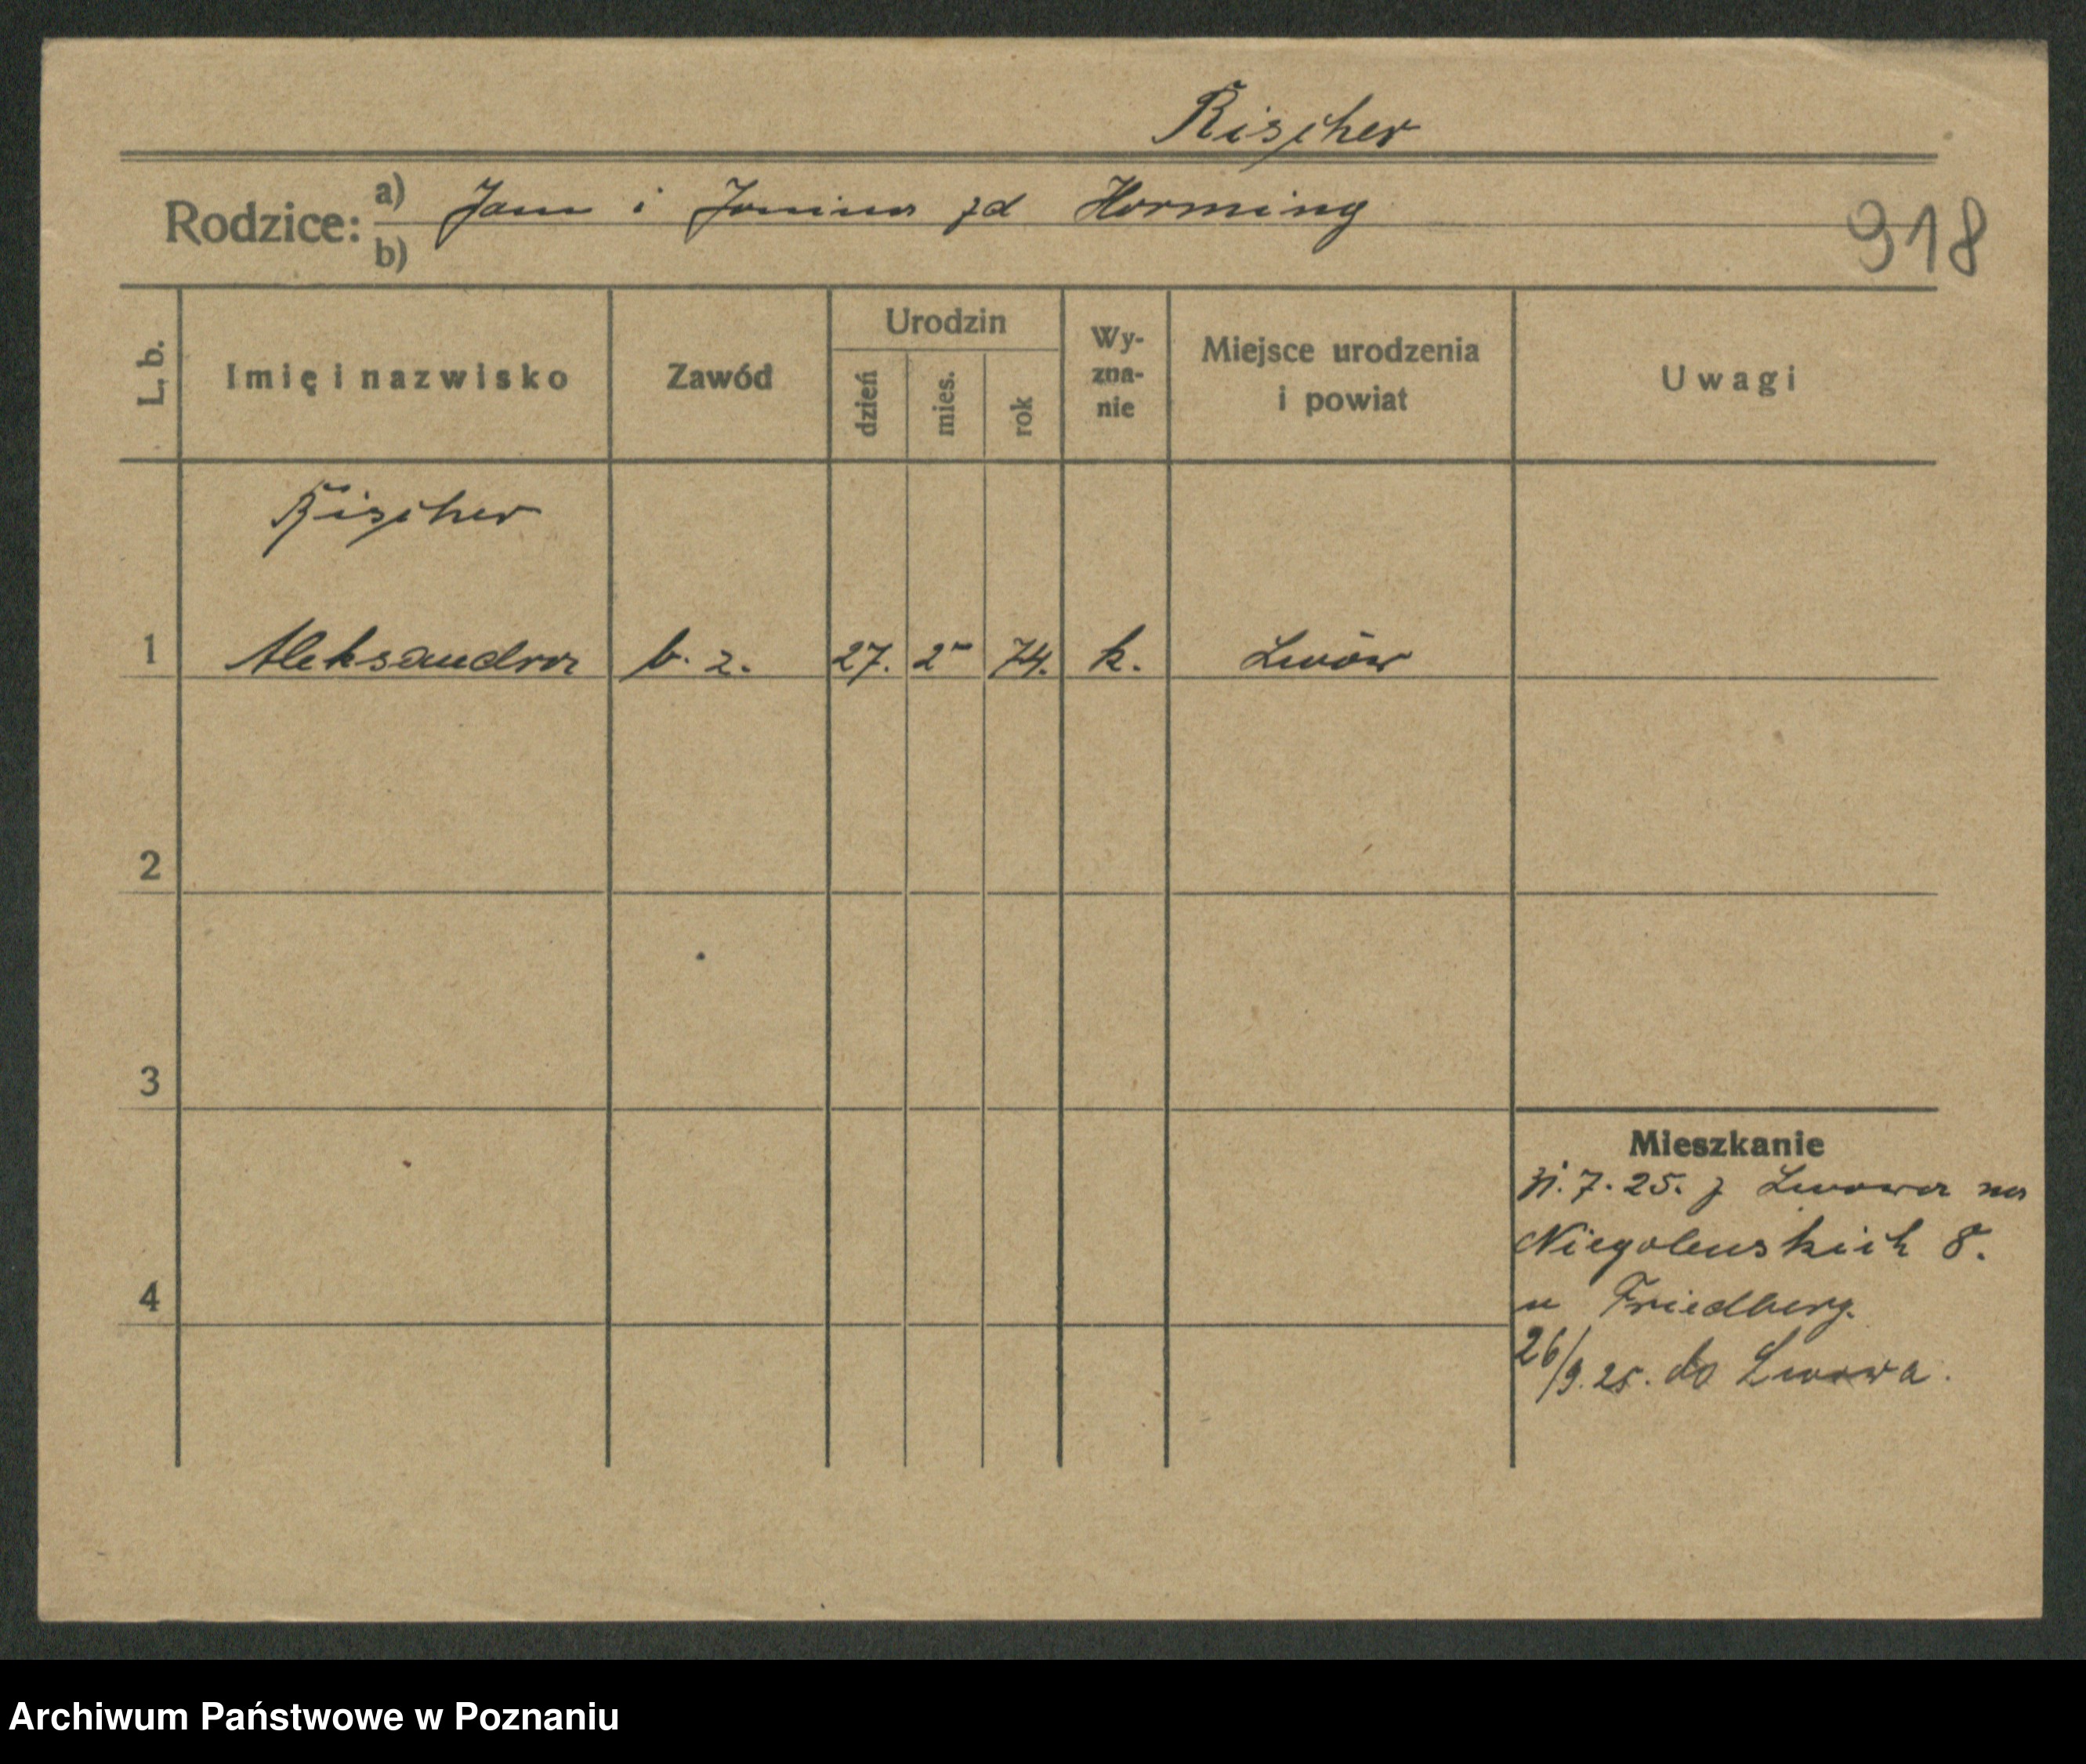 Rischer
Rodzice: a) Jan i Janina zd Horming
b)
918
L. b.
Imię i nazwisko
Zawód
Urodzin
dzień
mies.
rok
Wy-
zna-
nie
Miejsce urodzenia
i powiat
Uwagi
Rischer
1 Aleksandra b. z. 27. 2 74. k. Lwów
2
3
4
Mieszkanie
31.7.25. z Lwowa na
Niegolewskich 8.
u Friedberg.
26/9.25. do Lwowa.
Archiwum Państwowe w Poznaniu